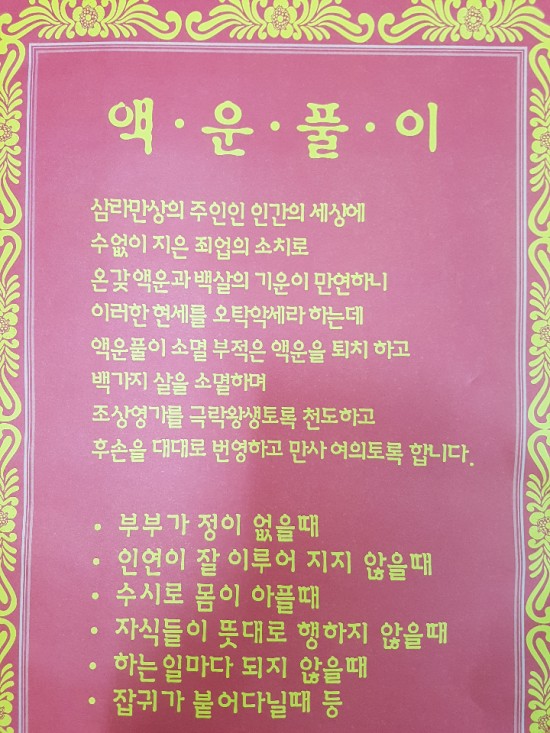 액·운·풀·이
삼라만상의 주인인 인간의 세상에
수없이 지은 죄업의 소치로
온갖 액운과 백살의 기운이 만연하니
이러한 현세를 오탁악세라 하는데
액운풀이 소멸 부적은 액운을 퇴치 하고
백가지 살을 소멸하며
조상영가를 극락왕생토록 천도하고
후손을 대대로 번영하고 만사 여의토록 합니다.
• 부부가 정이 없을때
• 인연이 잘 이루어 지지 않을때
• 수시로 몸이 아플때
• 자식들이 뜻대로 행하지 않을때
• 하는일마다 되지 않을때
• 잡귀가 붙어다닐때 등